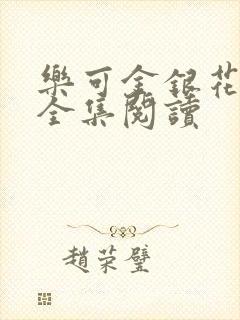 樂可金銀花
全集閱讀
趙荣璧